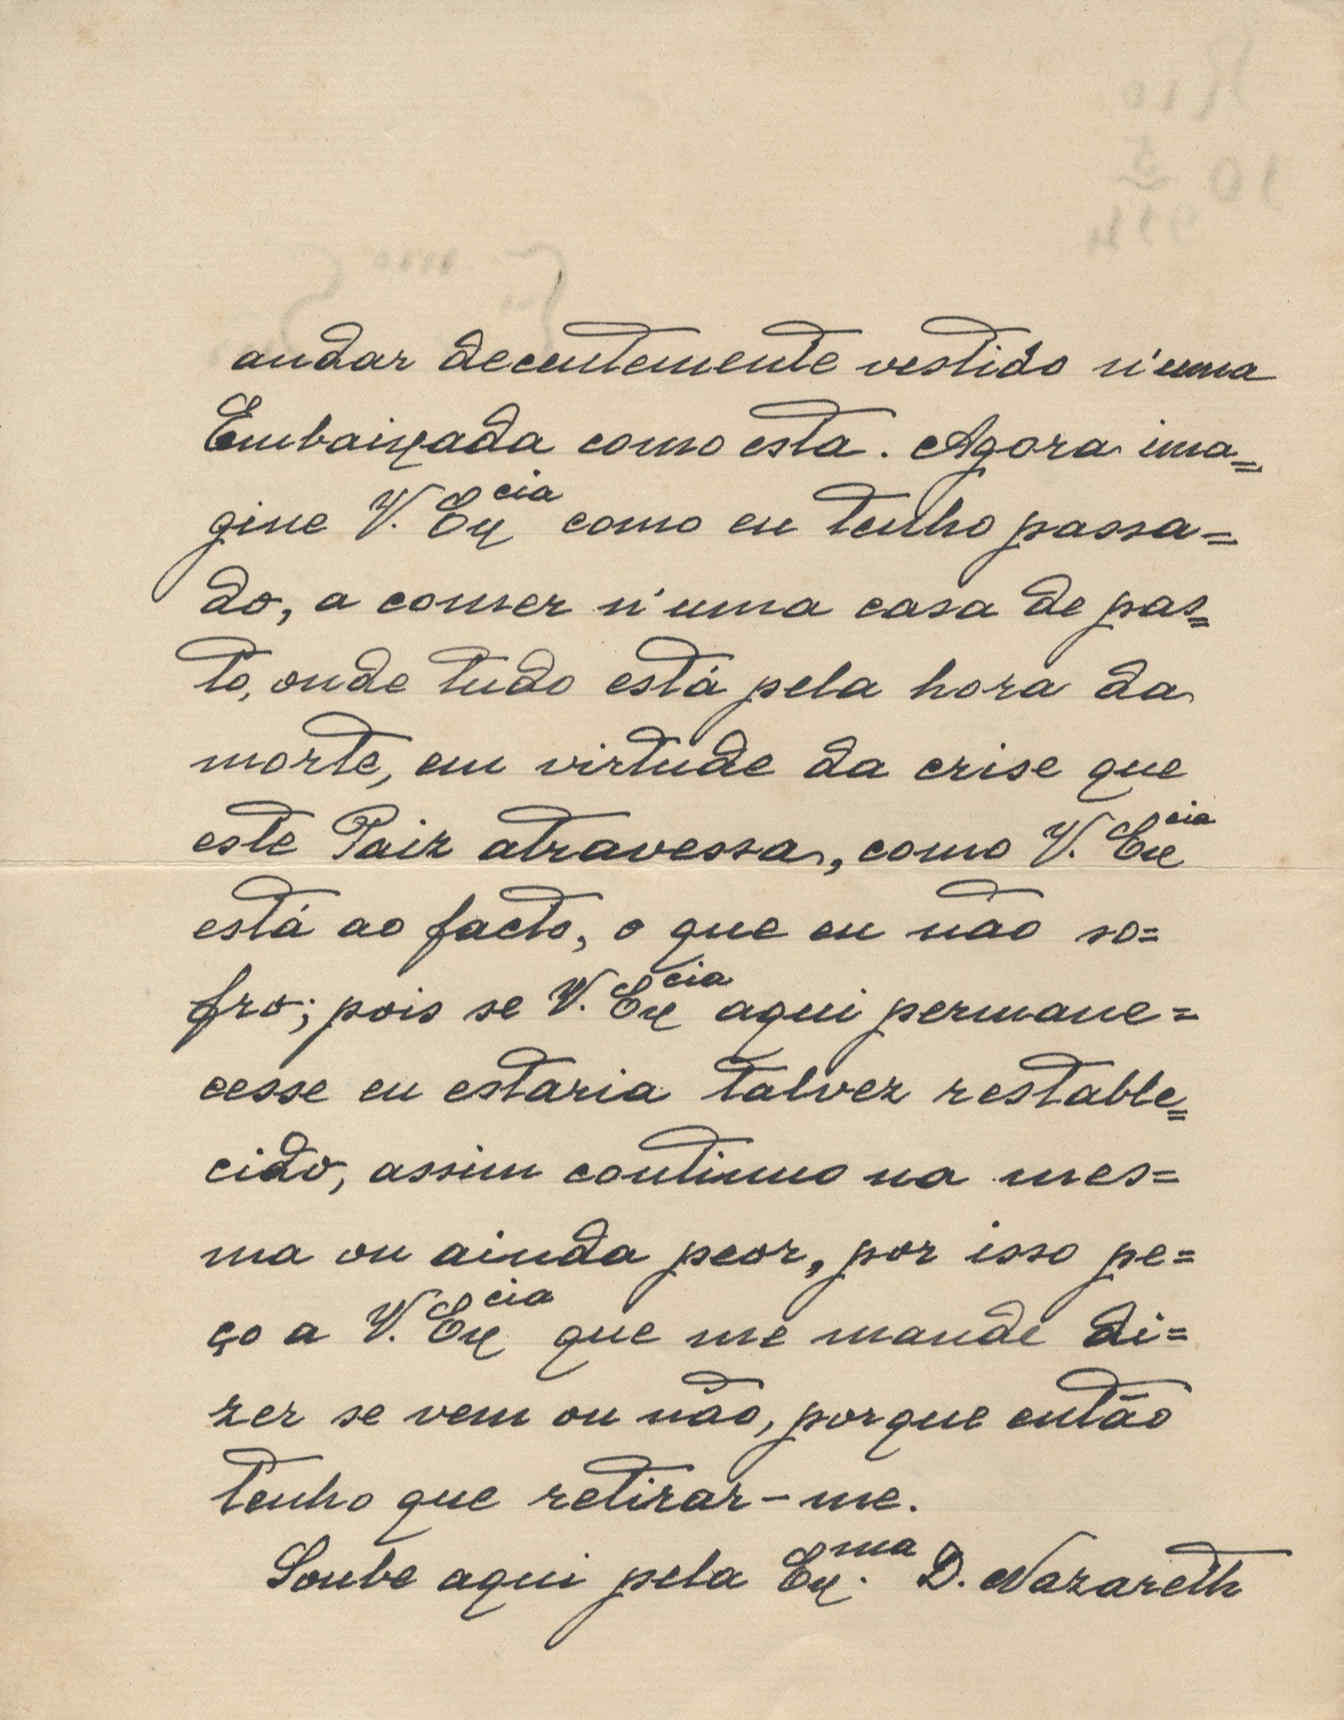 andar decentemente vestido n'uma
Embaixada como esta. Agora ima=
gine V. Ex.cia como eu tenho passa=
do, a comer n'uma casa de pas=
to, onde tudo está pela hora da
morte, em virtude da crise que
este Paiz atravessa, como V. Ex.cia
está ao facto, o que eu não so=
fro; pois se V. Ex.cia aqui permane=
cesse eu estaria talvez restable=
cido, assim continuo na mes=
ma ou ainda peor, por isso pe=
ço a V. Ex.cia que me mande di=
zer se vem ou não, porque então
tenho que retirar-me.
Soube aqui pela Ex.ma D. Nazareth